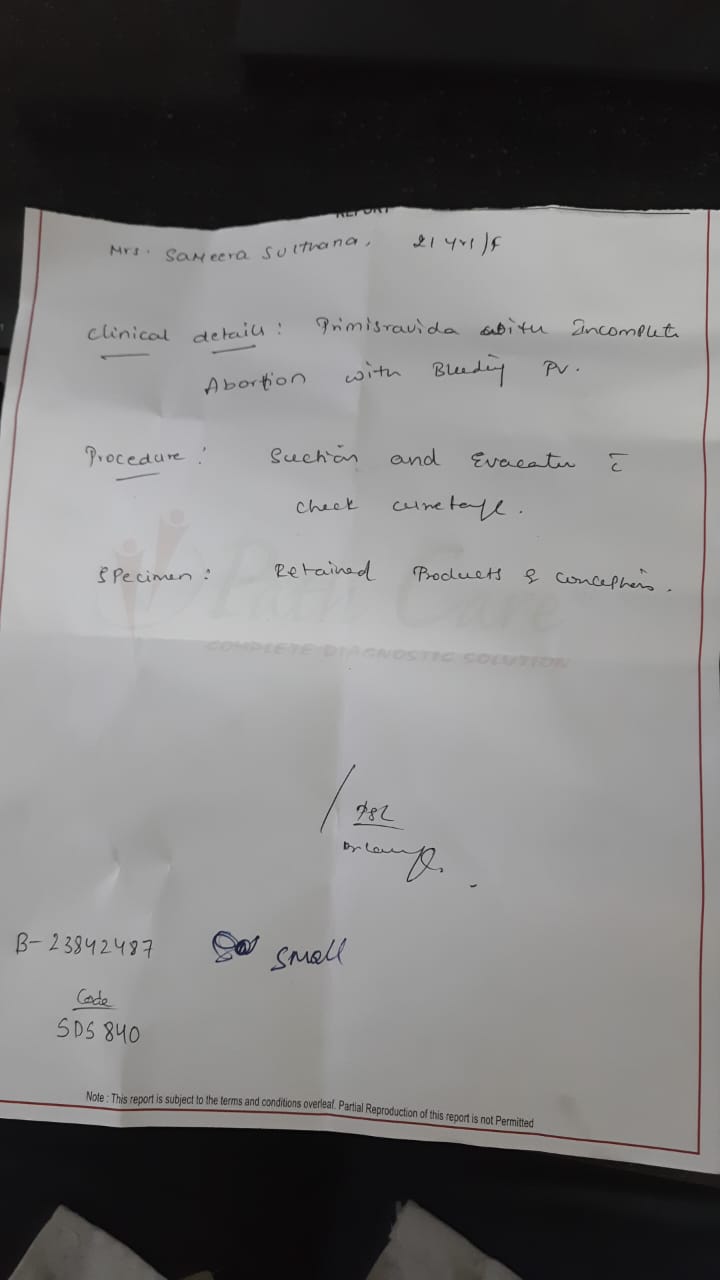 REPORT
Mrs. Sameera Sulthana, 21 yrs/F
Clinical details: Primigravida with Incomplete
Abortion with Bleeding PV.
Procedure: Suction and Evacuation c̄
check curretage.
Specimen: Retained Products of conception.
Path Care
COMPLETE DIAGNOSTIC SOLUTION
B-23842487 small
Code
SDS 840
Note : This report is subject to the terms and conditions overleaf. Partial Reproduction of this report is not Permitted